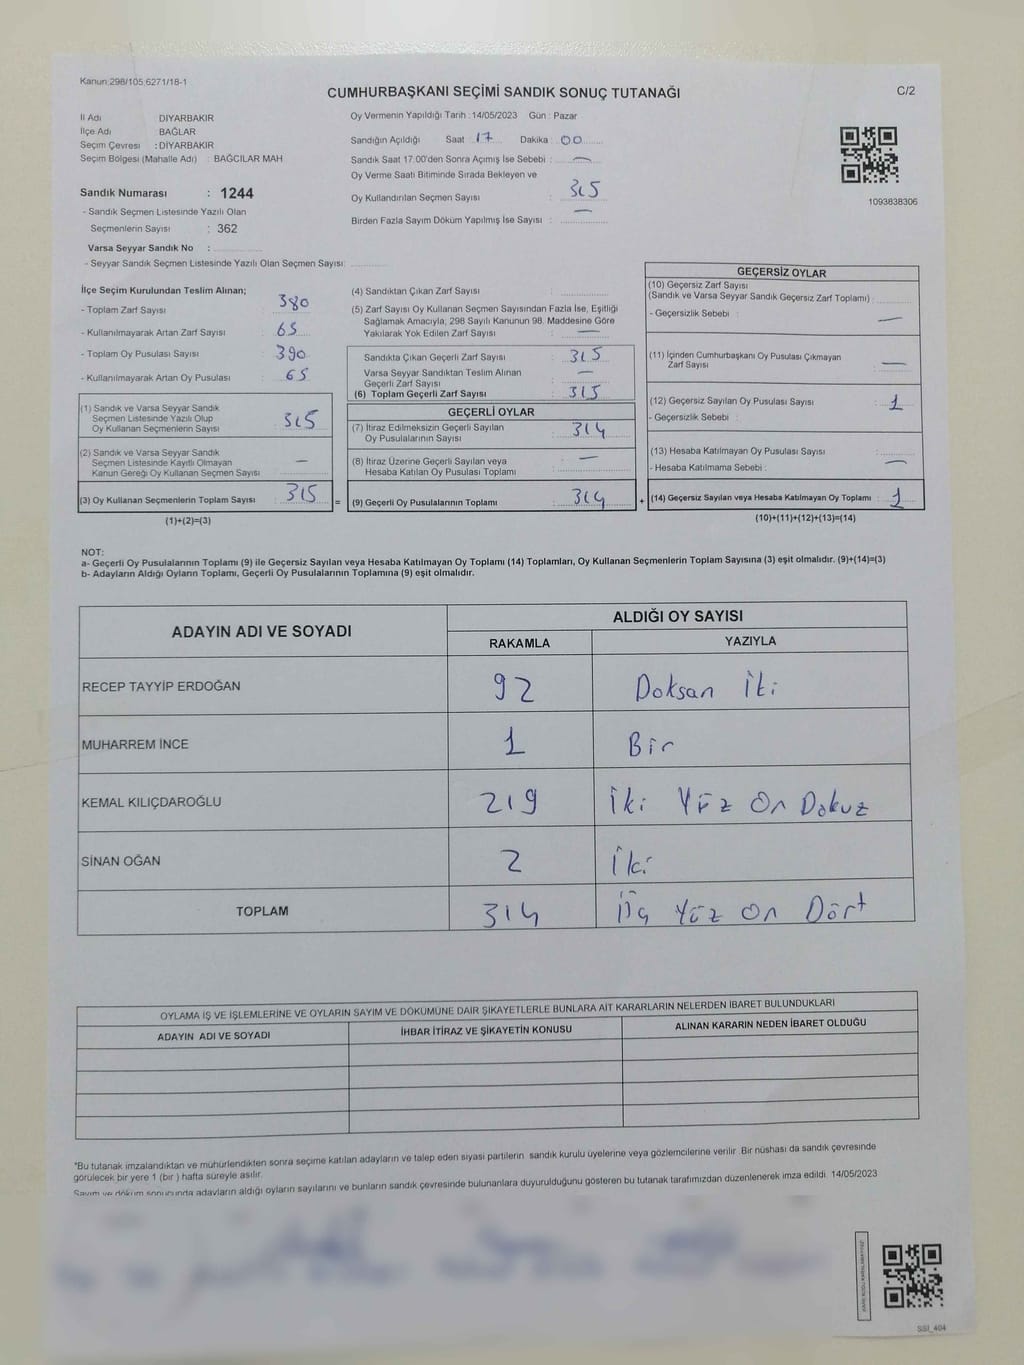 Kanun:298/105 6271/18-1
CUMHURBAŞKANI SEÇİMİ SANDIK SONUÇ TUTANAĞI
C/2
İl Adı DİYARBAKIR
İlçe Adı BAĞLAR
Seçim Çevresi : DİYARBAKIR
Seçim Bölgesi (Mahalle Adı) : BAĞCILAR MAH
Sandık Numarası : 1244
- Sandık Seçmen Listesinde Yazılı Olan
Seçmenlerin Sayısı : 362
Varsa Seyyar Sandık No :
- Seyyar Sandık Seçmen Listesinde Yazılı Olan Seçmen Sayısı:
Oy Vermenin Yapıldığı Tarih : 14/05/2023 Gün : Pazar
Sandığın Açıldığı Saat : 17 Dakika : 00
Sandık Saat 17:00'den Sonra Açımış İse Sebebi : —
Oy Verme Saati Bitiminde Sırada Bekleyen ve
Oy Kullandırılan Seçmen Sayısı : 315
Birden Fazla Sayım Döküm Yapılmış İse Sayısı : —
1093838306
İlçe Seçim Kurulundan Teslim Alınan;
- Toplam Zarf Sayısı : 380
- Kullanılmayarak Artan Zarf Sayısı : 65
- Toplam Oy Pusulası Sayısı : 390
- Kullanılmayarak Artan Oy Pusulası : 65
(1) Sandık ve Varsa Seyyar Sandık
Seçmen Listesinde Yazılı Olup
Oy Kullanan Seçmenlerin Sayısı : 315
(2) Sandık ve Varsa Seyyar Sandık
Seçmen Listesinde Kayıtlı Olmayan
Kanun Gereği Oy Kullanan Seçmen Sayısı : —
(3) Oy Kullanan Seçmenlerin Toplam Sayısı : 315 =
(1)+(2)=(3)
(4) Sandıktan Çıkan Zarf Sayısı :
(5) Zarf Sayısı Oy Kullanan Seçmen Sayısından Fazla İse, Eşitliği
Sağlamak Amacıyla; 298 Sayılı Kanunun 98. Maddesine Göre
Yakılarak Yok Edilen Zarf Sayısı : —
Sandıkta Çıkan Geçerli Zarf Sayısı : 315
Varsa Seyyar Sandıktan Teslim Alınan
Geçerli Zarf Sayısı : —
(6) Toplam Geçerli Zarf Sayısı : 315
GEÇERLİ OYLAR
(7) İtiraz Edilmeksizin Geçerli Sayılan
Oy Pusulalarının Sayısı : 314
(8) İtiraz Üzerine Geçerli Sayılan veya
Hesaba Katılan Oy Pusulası Toplamı : —
(9) Geçerli Oy Pusulalarının Toplamı : 314 +
GEÇERSİZ OYLAR
(10) Geçersiz Zarf Sayısı
(Sandık ve Varsa Seyyar Sandık Geçersiz Zarf Toplamı) :
- Geçersizlik Sebebi : —
(11) İçinden Cumhurbaşkanı Oy Pusulası Çıkmayan
Zarf Sayısı : —
(12) Geçersiz Sayılan Oy Pusulası Sayısı : 1
- Geçersizlik Sebebi :
(13) Hesaba Katılmayan Oy Pusulası Sayısı :
- Hesaba Katılmama Sebebi : —
(14) Geçersiz Sayılan veya Hesaba Katılmayan Oy Toplamı : 1
(10)+(11)+(12)+(13)=(14)
NOT:
a- Geçerli Oy Pusulalarının Toplamı (9) ile Geçersiz Sayılan veya Hesaba Katılmayan Oy Toplamı (14) Toplamları, Oy Kullanan Seçmenlerin Toplam Sayısına (3) eşit olmalıdır. (9)+(14)=(3)
b- Adayların Aldığı Oyların Toplamı, Geçerli Oy Pusulalarının Toplamına (9) eşit olmalıdır.
ADAYIN ADI VE SOYADI ALDIĞI OY SAYISI
RAKAMLA YAZIYLA
RECEP TAYYİP ERDOĞAN 92 Doksan İki
MUHARREM İNCE 1 Bir
KEMAL KILIÇDAROĞLU 219 İki Yüz On Dokuz
SİNAN OĞAN 2 İki
TOPLAM 314 Üç Yüz On Dört
OYLAMA İŞ VE İŞLEMLERİNE VE OYLARIN SAYIM VE DÖKÜMÜNE DAİR ŞİKAYETLERLE BUNLARA AİT KARARLARIN NELERDEN İBARET BULUNDUKLARI
ADAYIN ADI VE SOYADI İHBAR İTİRAZ VE ŞİKAYETİN KONUSU ALINAN KARARIN NEDEN İBARET OLDUĞU
*Bu tutanak imzalandıktan ve mühürlendikten sonra seçime katılan adayların ve talep eden siyasi partilerin sandık kurulu üyelerine veya gözlemcilerine verilir. Bir nüshası da sandık çevresinde
görülecek bir yere 1 (bir) hafta süreyle asılır.
Sayım ve döküm sonucunda adayların aldığı oyların sayılarını ve bunların sandık çevresinde bulunanlara duyurulduğunu gösteren bu tutanak tarafımızdan düzenlenerek imza edildi. 14/05/2023
SSI_404